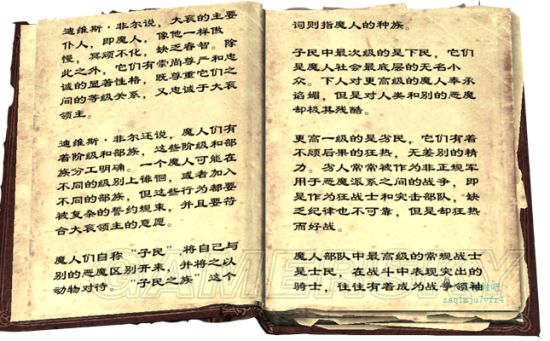 迪维斯·非尔说，大衮的主要
仆人，即魔人，像他一样傲
慢，冥顽不化，缺乏睿智。除
此之外，它们有崇尚尊严和忠
诚的显着性格，既尊重它们之
间的等级关系，又忠于大衮
领主。
迪维斯·非尔还说，魔人们有
着阶级和部族，这些阶级和部
族分工明确。一个魔人可能在
不同的级别上徘徊，或者加入
不同的部族，但这些行为都要
被复杂的誓约规束，并且要符
合大衮领主的意愿。
魔人们自称“子民”将自己与
别的恶魔区别开来，并将之以
动物对待。“子民之族”这个
词则指魔人的种族。
子民中最次级的是下民，它们
是魔人社会最底层的无名小
众。下人对更高级的魔人奉承
谄媚，但是对人类和别的恶魔
却极其残酷。
更高一级的是劣民，它们有着
不顾后果的狂热，无差别的精
力。劣人常常被作为非正规军
用于恶魔派系之间的战争，即
是作为狂战士和突击部队，缺
乏纪律也不可靠，但是却狂热
而好战。
魔人部队中最高级的常规战士
是士民，在战斗中表现突出的
骑士，往往有着成为战争领袖
GAMERSKY
zaqimju7vfr4